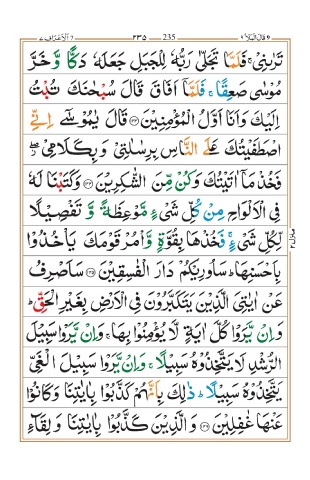 قال الملا ٩ ٢٣٥ 235 الاعراف ٧
تَرٰىنِیْ ۚ فَلَمَّا تَجَلّٰی رَبُّهٗ لِلْجَبَلِ جَعَلَهٗ دَكًّا وَّ خَرَّ
مُوْسٰی صَعِقًا ۚ فَلَمَّاۤ اَفَاقَ قَالَ سُبْحٰنَكَ تُبْتُ
اِلَیْكَ وَ اَنَا اَوَّلُ الْمُؤْمِنِیْنَ ﴿۱۴۳﴾ قَالَ یٰمُوْسٰۤی اِنِّی
اصْطَفَیْتُكَ عَلَی النَّاسِ بِرِسٰلٰتِیْ وَ بِكَلَامِیْ ۖ
فَخُذْ مَاۤ اٰتَیْتُكَ وَ كُنْ مِّنَ الشّٰكِرِیْنَ ﴿۱۴۴﴾ وَ كَتَبْنَا لَهٗ
فِی الْاَلْوَاحِ مِنْ كُلِّ شَیْءٍ مَّوْعِظَةً وَّ تَفْصِیْلًا
لِّكُلِّ شَیْءٍ ۚ فَخُذْهَا بِقُوَّةٍ وَّ اْمُرْ قَوْمَكَ یَاْخُذُوْا
بِاَحْسَنِهَا ؕ سَاُورِیْكُمْ دَارَ الْفٰسِقِیْنَ ﴿۱۴۵﴾ سَاَصْرِفُ
عَنْ اٰیٰتِیَ الَّذِیْنَ یَتَكَبَّرُوْنَ فِی الْاَرْضِ بِغَیْرِ الْحَقِّ ؕ
وَ اِنْ یَّرَوْا كُلَّ اٰیَةٍ لَّا یُؤْمِنُوْا بِهَا ۚ وَ اِنْ یَّرَوْا سَبِیْلَ
الرُّشْدِ لَا یَتَّخِذُوْهُ سَبِیْلًا ۚ وَ اِنْ یَّرَوْا سَبِیْلَ الْغَیِّ
یَتَّخِذُوْهُ سَبِیْلًا ؕ ذٰلِكَ بِاَنَّهُمْ كَذَّبُوْا بِاٰیٰتِنَا وَ كَانُوْا
عَنْهَا غٰفِلِیْنَ ﴿۱۴۶﴾ وَ الَّذِیْنَ كَذَّبُوْا بِاٰیٰتِنَا وَ لِقَآءِ